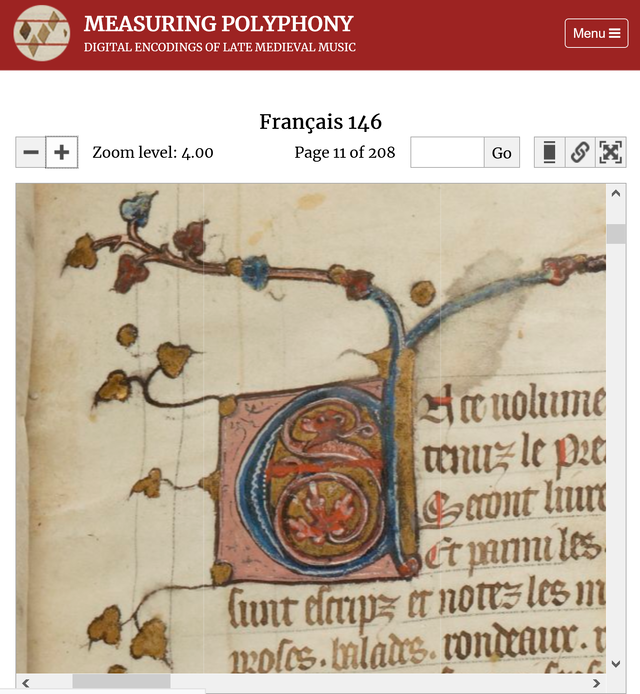 MEASURING POLYPHONY
DIGITAL ENCODINGS OF LATE MEDIEVAL MUSIC
Menu
Français 146
Zoom level: 4.00
Page 11 of 208
Go
E
ce uolume
tenuz le pre
Secont liure
Et parmi les
sunt escripz et notez les m
proses. balades. rondeaux. r